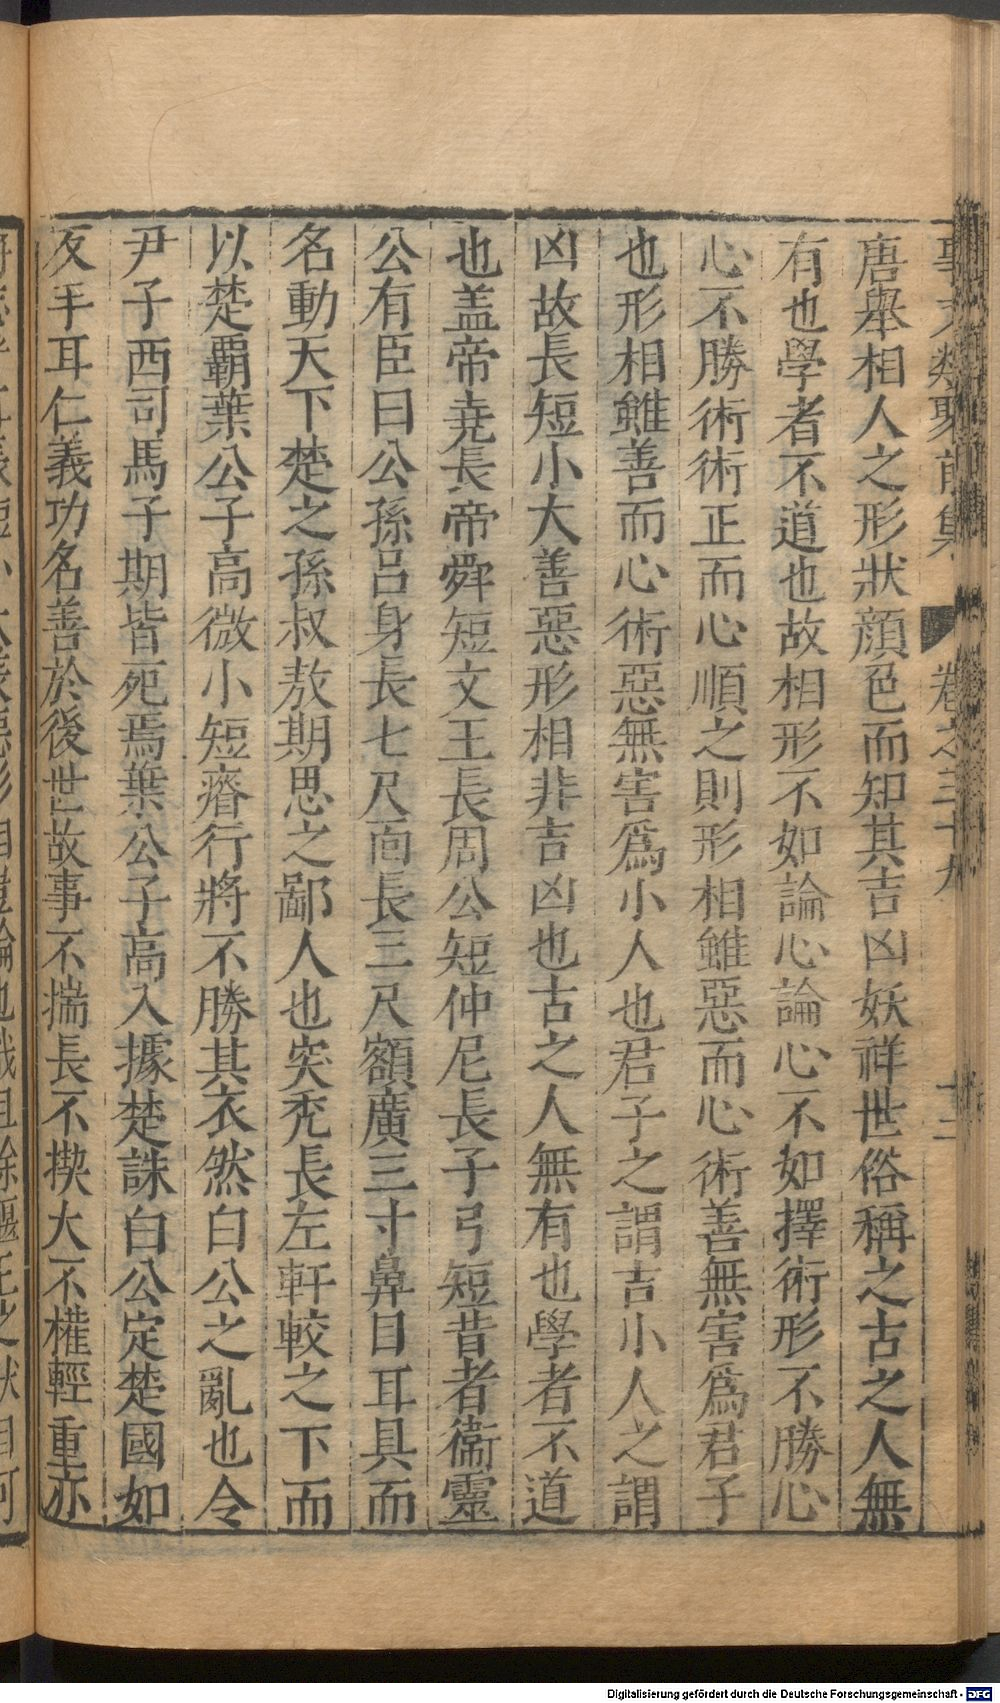 事文類聚前集 卷之三十九 十二
唐舉相人之形狀顔色而知其吉凶妖祥世俗稱之古之人無
有也學者不道也故相形不如論心論心不如擇術形不勝心
心不勝術術正而心順之則形相雖惡而心術善無害爲君子
也形相雖善而心術惡無害爲小人也君子之謂吉小人之謂
凶故長短小大善惡形相非吉凶也古之人無有也學者不道
也盖帝堯長帝舜短文王長周公短仲尼長子弓短昔者衞靈
公有臣曰公孫吕身長七尺面長三尺額廣三寸鼻目耳具而
名動天下楚之孫叔敖期思之鄙人也突禿長左軒較之下而
以楚霸葉公子高微小短瘠行將不勝其衣然白公之亂也令
尹子西司馬子期皆死焉葉公子高入據楚誅白公定楚國如
反手耳仁義功名善於後世故事不揣長不揳大不權輕重亦
Digitalisierung gefördert durch die Deutsche Forschungsgemeinschaft - DFG